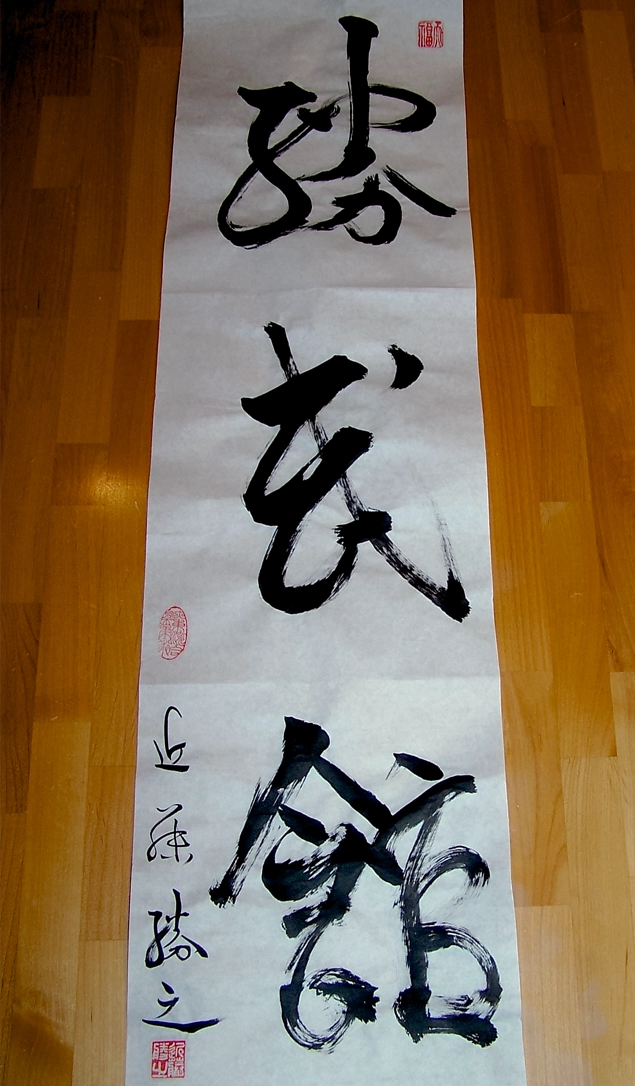 勝武館
近藤勝之